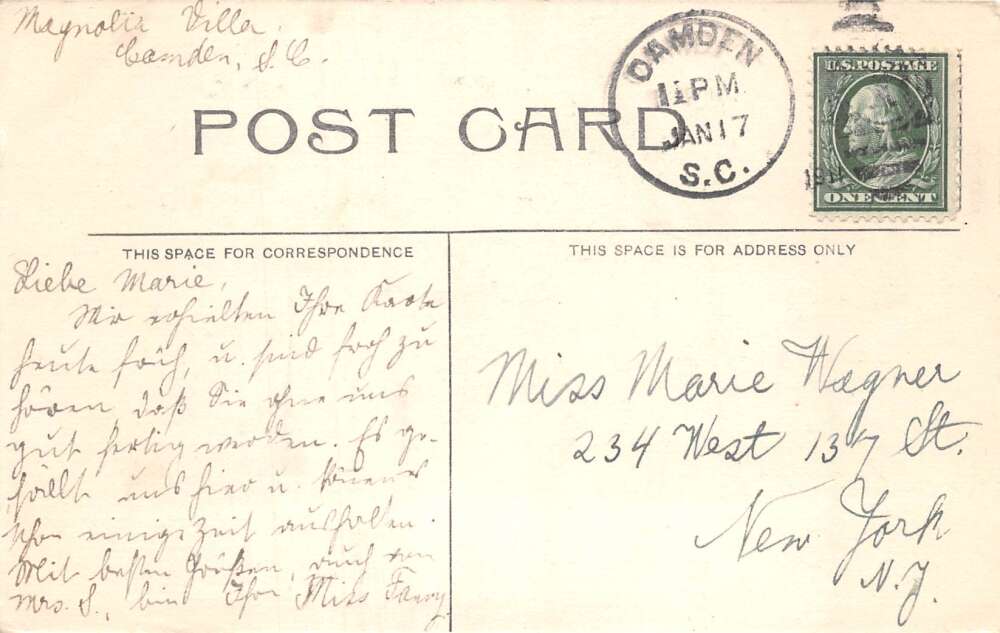 Magnolia Villa
Camden, S. C.
POST CARD
CAMDEN
11 PM
JAN 17
S.C.
U.S. POSTAGE
ONE CENT
THIS SPACE FOR CORRESPONDENCE
THIS SPACE IS FOR ADDRESS ONLY
Liebe Marie,
Wir erhielten Ihre Karte
heute früh, u. sind froh zu
hören, daß Sie ohne uns
gut fertig werden. Es ge-
fällt uns hier u. können's
schon einige Zeit aushalten.
Mit besten Grüßen, auch von
Mrs. S., bin Ihre Miss Fanny
Miss Marie Wagner
234 West 137 St.
New York
N.Y.